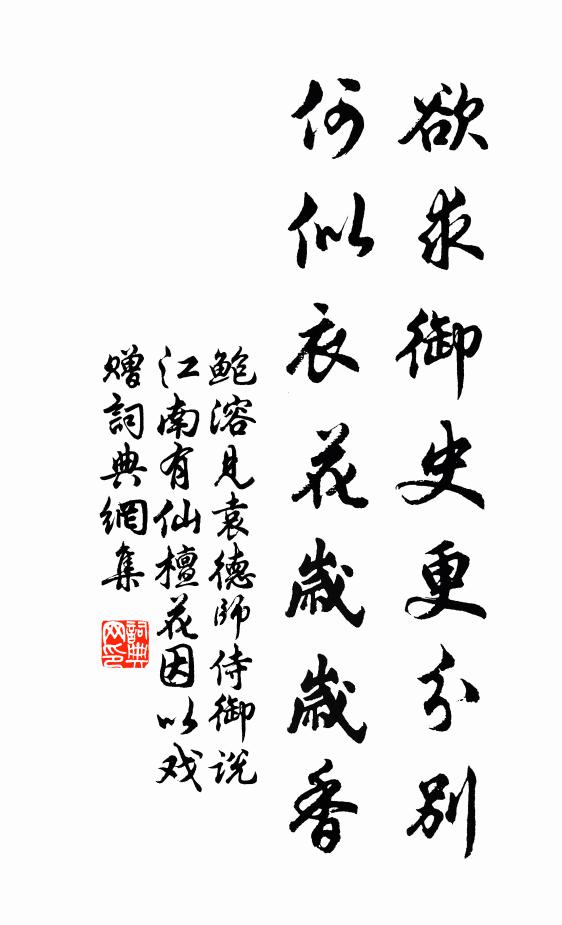 欲求御史更分别
何似衣花歲歲香
鲍溶見袁德師侍御説
江南有仙檀花因以戏
赠詞典網集
詞典网印